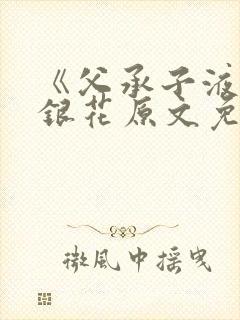 《父承子液
銀花原文免
微風中摇曳